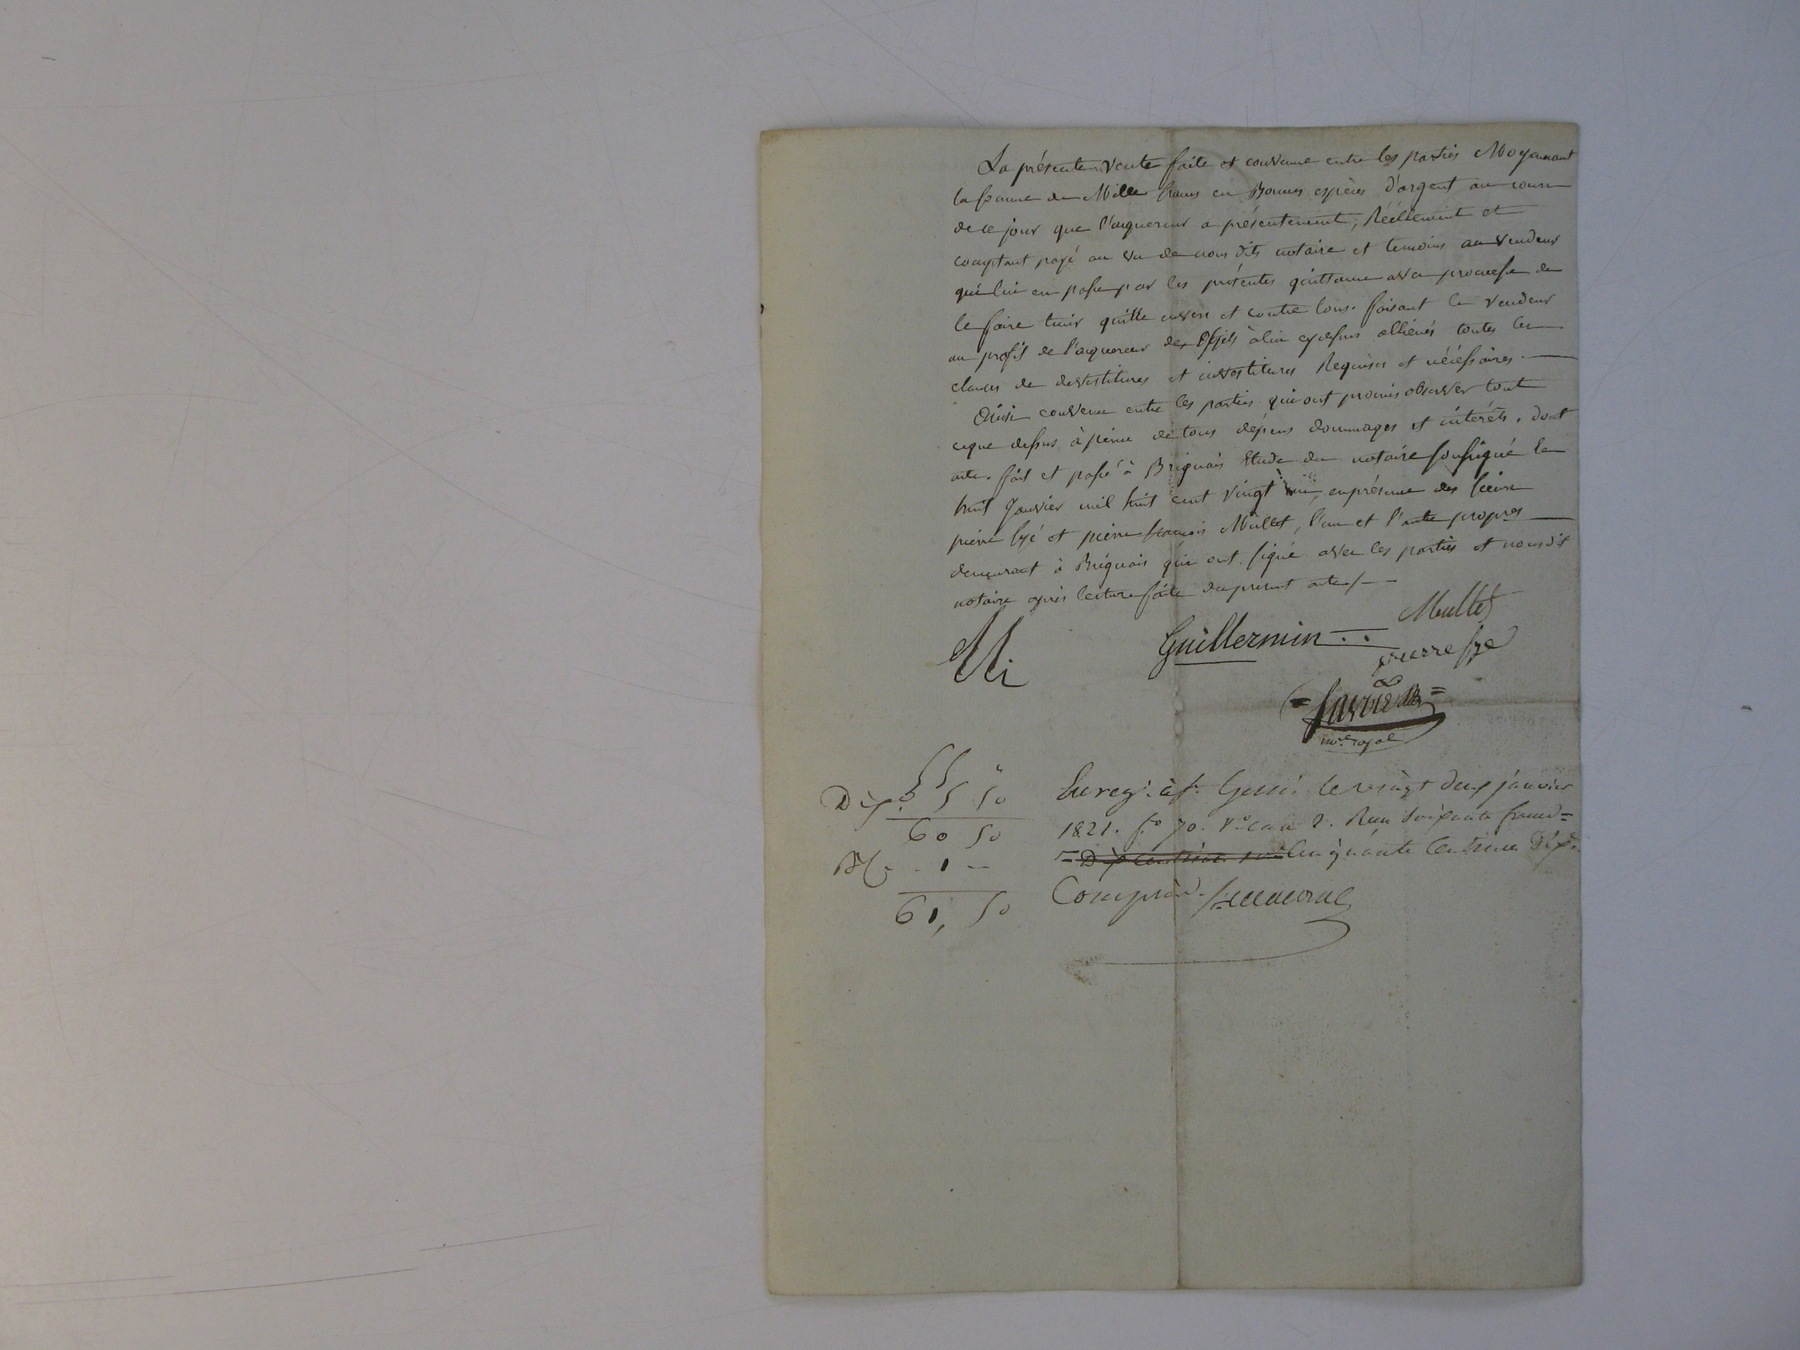 La présente vente faite et convenue entre les parties Moyennant
la somme de Mille francs en Bonnes espèces d'argent au cours
de ce jour que l'acquereur a présentement, Réellement et
comptant payé au vu de nous dits notaire et temoins au vendeur
qui lui en passe par les présentes quittance avec promesse de
le faire tenir quitte envers et contre tous. faisant le vendeur
au profit de l'acquereur des Effets à lui cydessus alliénés toutes les
clauses de devestitures et investitures Requises et nécéssaires.
Ainsi convenu entre les parties qui ont promis observer tout
ceque dessus à peine de tous dépens dommages et intérêts. Dont
acte. fait et passé à Brignais Etude du notaire soussigné le
huit Janvier mil huit cent vingt un, en présence des sieurs
pierre et pierre françois Mullet, l'un et l'autre propres
demeurant à Brignais qui ont signé avec les parties et nousdit
notaire après lecture faite du present acte /
Mullet
Guillermin
pierre
nre royal
55 "
Dix. 5 50
60 50
1 —
61, 50
Enreg. à St. Genis le vingt deux janvier
1821. fo 70. Vo case 2. Reçu soixante francs
cinquante Centimes Dixe
Compris.